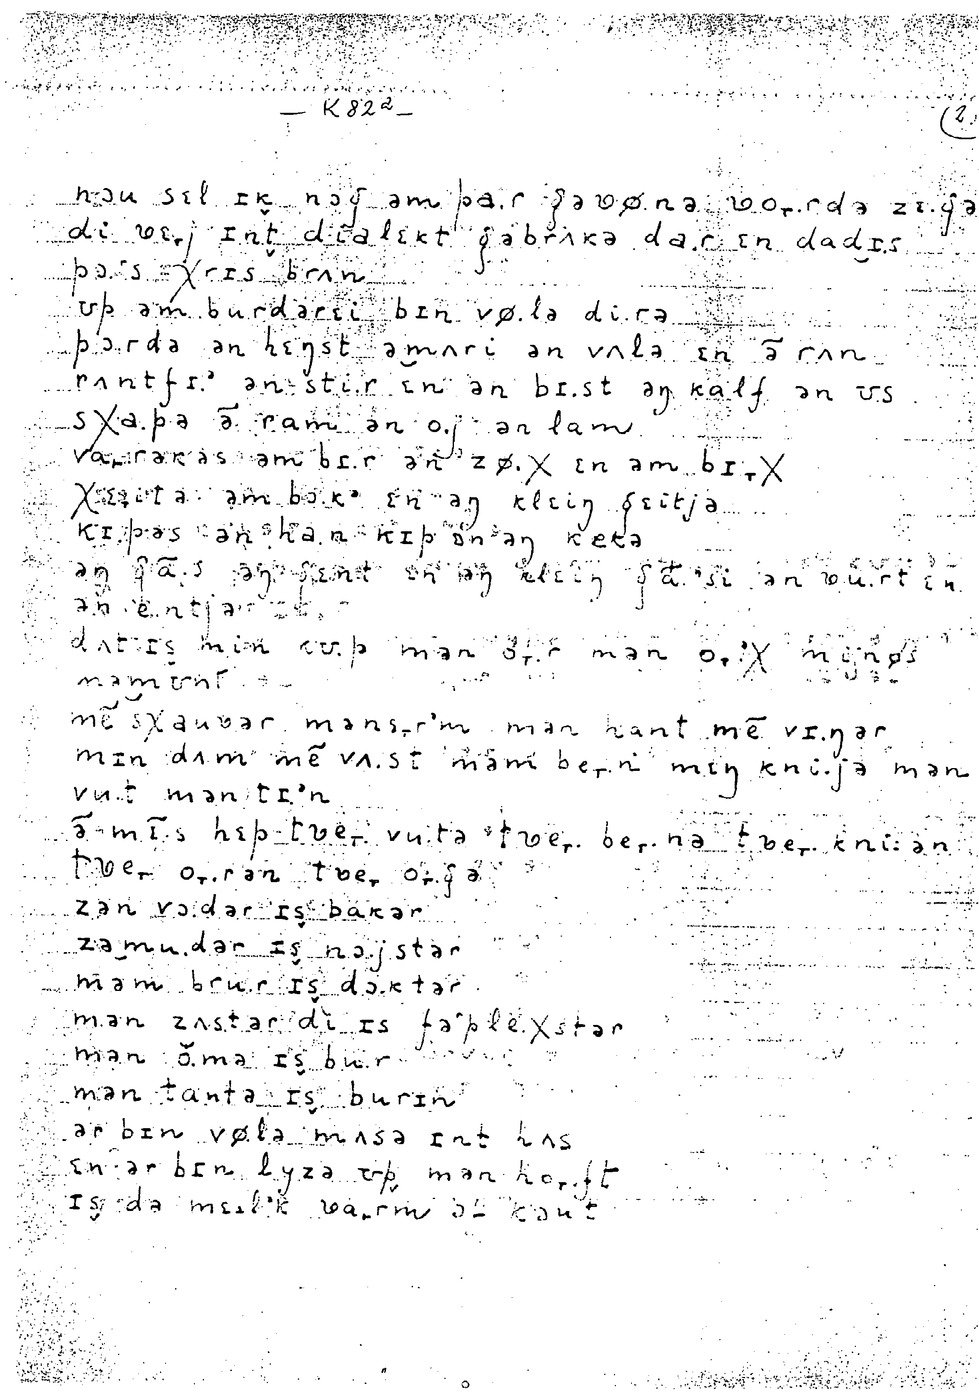 — K 82ᵃ —
(2.
nɔu sɛl ɪk̬ nɔɠ əm pa.r ɠəwø.nə wo.rdə zɛ.ɠə
di we.j ɪnt̬ dialɛkt ɠəbrʌkə da.r ɛn dadɪs
pɔ.ˑs χrɪs brʌn
ʊp əm burdərɛi bɪn vø.lə di.rə
pɔrdə ən hɛŋst əmʌri ən vʌlə ɛn ə̃ rʌn
rʌntfɪ.ᵊ ən stir ɛn ən bɪ.st əŋ kalf ən ʊs
sχa.pə ə̃ ram ən o.j ən lam
varəkəs əm bɪ.r ən zø.χ ɛn əm bɪ.χ
χɛitə əm bɔkᵊ ɛn əŋ klɛiŋ ɠɛitjə
kɪpəs ən ha.n kɪp ən əŋ kekə
əŋ ɠã.s əŋ ɠɛnt ɛn əŋ klɛiŋ ɠã.si ən wu.rt ɛn
ən entjə
dʌt ɪs̬ min mən mən
məmʊnt
mẽ sχauwər mənɛrᵊm mən hant mẽ vɪ.ŋər
mɪn dʌm mẽ vʌ.st məm be.n mɛŋ kni.jə mən
vu.t mən tɪ.ᵊn
ə̃ mĩ.s hɛp twe. vu.tə twe. be.nə twe. kni:ən
twe. o.rən twe. o.ɠə
zən vɔ.dər ɪs̬ bakər
zəmu.dər ɪs̬ nɔ.jstər
məm bru.r ɪs̬ dɔ.ktər
mən zʌstər di ɪs fəˑple.χstər
mən o.ma ɪs̬ bu.r
mən tantə ɪs̬ burɪn
ər bɪn vølə mʌsə ɪnt hʌs
ɛn ər bɪn lyzə ʊp̬ mən ho.ft
ɪs̬ də mɛlᵊk wa.rm ɔf kɔut